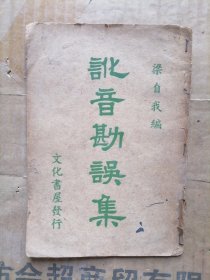 梁自我編
訛音勘誤集
文化書屋發行